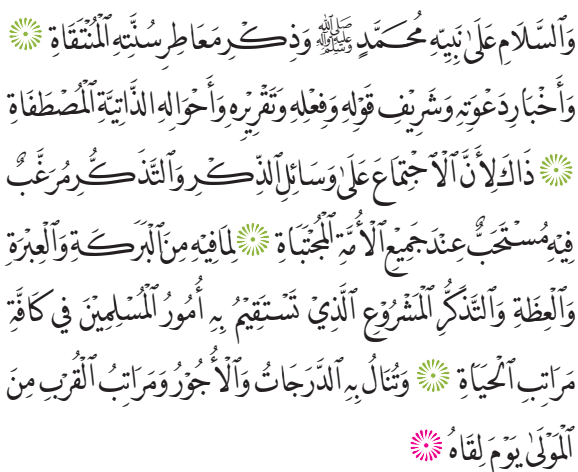 وَٱلسَّلَامِ عَلَىٰ نَبِيِّهِ مُحَمَّدٍ ﷺ وَذِكْرِ مَعَاطِرِ سُنَّتِهِ ٱلْمُنْتَقَاةِ ۞
وَأَخْبَارِ دَعْوَتِهِ وَشَرِيفِ قَوْلِهِ وَفِعْلِهِ وَتَقْرِيرِهِ وَأَحْوَالِهِ ٱلذَّاتِيَّةِ ٱلْمُصْطَفَاةِ
۞ ذَاكَ لِأَنَّ ٱلْاِجْتِمَاعَ عَلَىٰ وَسَائِلِ ٱلذِّكْرِ وَٱلتَّذَكُّرِ مُرَغَّبٌ
فِيْهِ مُسْتَحَبٌّ عِنْدَ جَمِيْعِ ٱلْأُمَّةِ ٱلْمُجْتَبَاةِ ۞ لِمَا فِيْهِ مِنَ ٱلْبَرَكَةِ وَٱلْعِبْرَةِ
وَٱلْعِظَةِ وَٱلتَّذَكُّرِ ٱلْمَشْرُوْعِ ٱلَّذِيْ تَسْتَقِيْمُ بِهِ أُمُورُ ٱلْمُسْلِمِيْنَ فِي كَافَّةِ
مَرَاتِبِ ٱلْحَيَاةِ ۞ وَتُنَالُ بِهِ ٱلدَّرَجَاتُ وَٱلْأُجُوْرُ وَمَرَاتِبُ ٱلْقُرْبِ مِنَ
ٱلْمَوْلَىٰ يَوْمَ لِقَاهُ ۞